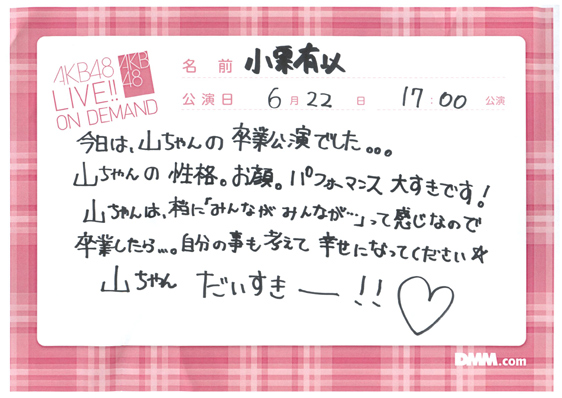 AKB48
LIVE!!
ON DEMAND
AKB
48
名 前 小栗有以
公演日 6月22日 17:00 公演
今日は、山ちゃんの 卒業公演でした。。。
山ちゃんの 性格。お顔。パフォーマンス 大すきです!
山ちゃんは、常に「みんなが みんなが…」って感じなので
卒業したら…。自分の事も考えて 幸せになってください☆
山ちゃん だいすきー!!♡
DMM.com